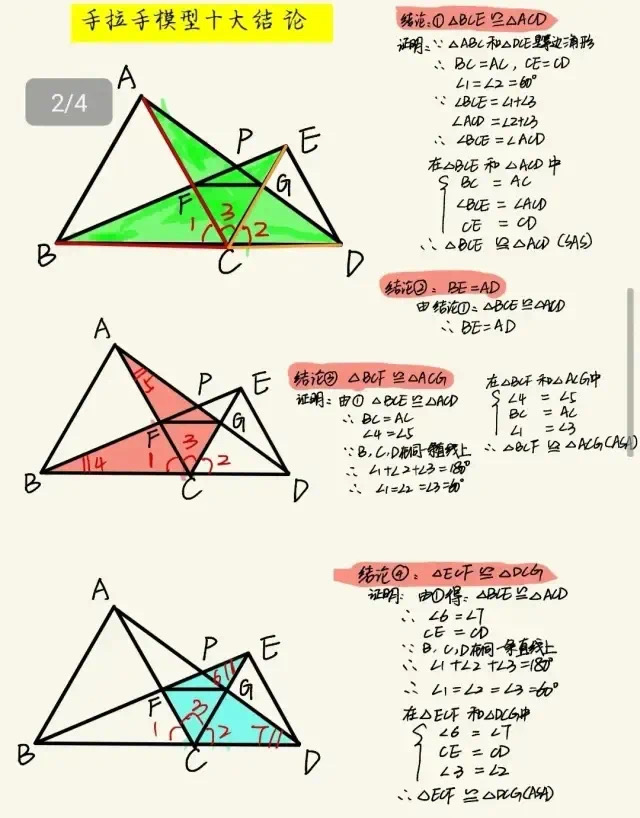 手拉手模型十大结论
2/4
A
P
E
F
G
1
3
2
B
C
D
结论:① △BCE ≌ △ACD
证明:∵ △ABC和△DCE是等边三角形
∴ BC=AC, CE=CD
∠1=∠2=60°
∵ ∠BCE=∠1+∠3
∠ACD=∠2+∠3
∴ ∠BCE=∠ACD
在△BCE 和 △ACD 中
BC = AC
∠BCE = ∠ACD
CE = CD
∴ △BCE ≌ △ACD (SAS)
结论②: BE=AD
由结论①: △BCE≌△ACD
∴ BE=AD
A
5
P
E
F
G
4
1
3
2
B
C
D
结论③ △BCF ≌ △ACG
证明: 由① △BCE ≌ △ACD
∴ BC=AC
∠4=∠5
∵ B、C、D在同一条直线上
∴ ∠1+∠2+∠3=180°
∴ ∠1=∠2=∠3=60°
在△BCF 和△ACG中
∠4 = ∠5
BC = AC
∠1 = ∠3
∴ △BCF ≌ △ACG(ASA)
A
P
E
6
F
G
1
3
2
7
B
C
D
结论④: △ECF ≌ △DCG
证明: 由①得: △BCE≌△ACD
∴ ∠6=∠7
CE = CD
∵ B、C、D在同一条直线上
∴ ∠1+∠2+∠3=180°
∴ ∠1=∠2=∠3=60°
在△ECF 和△DCG中
∠6 = ∠7
CE = CD
∠3 = ∠2
∴ △ECF ≌ △DCG(ASA)